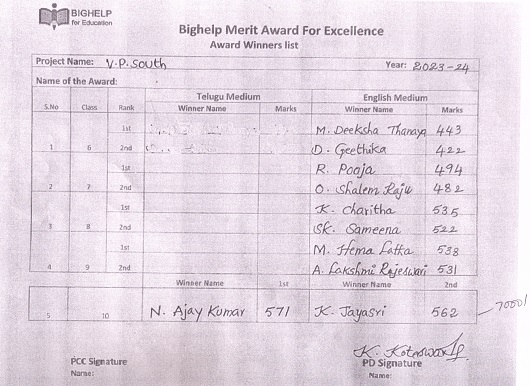 BIGHELP
for Education
Bighelp Merit Award For Excellence
Award Winners list
Project Name: V.P. South Year: 2023-24
Name of the Award:
Telugu Medium English Medium
S.No Class Rank Winner Name Marks Winner Name Marks
1st M. Deeksha Thanaya 443
1 6 2nd D. Geethika 422
1st R. Pooja 494
2 7 2nd O. Shalem Raju 482
1st K. Charitha 535
3 8 2nd SK. Sameena 522
1st M. Hema Latha 538
4 9 2nd A. Lakshmi Rajeswari 531
Winner Name 1st Winner Name 2nd
5 10 N. Ajay Kumar 571 K. Jayasri 562
PCC Signature PD Signature
Name: Name: